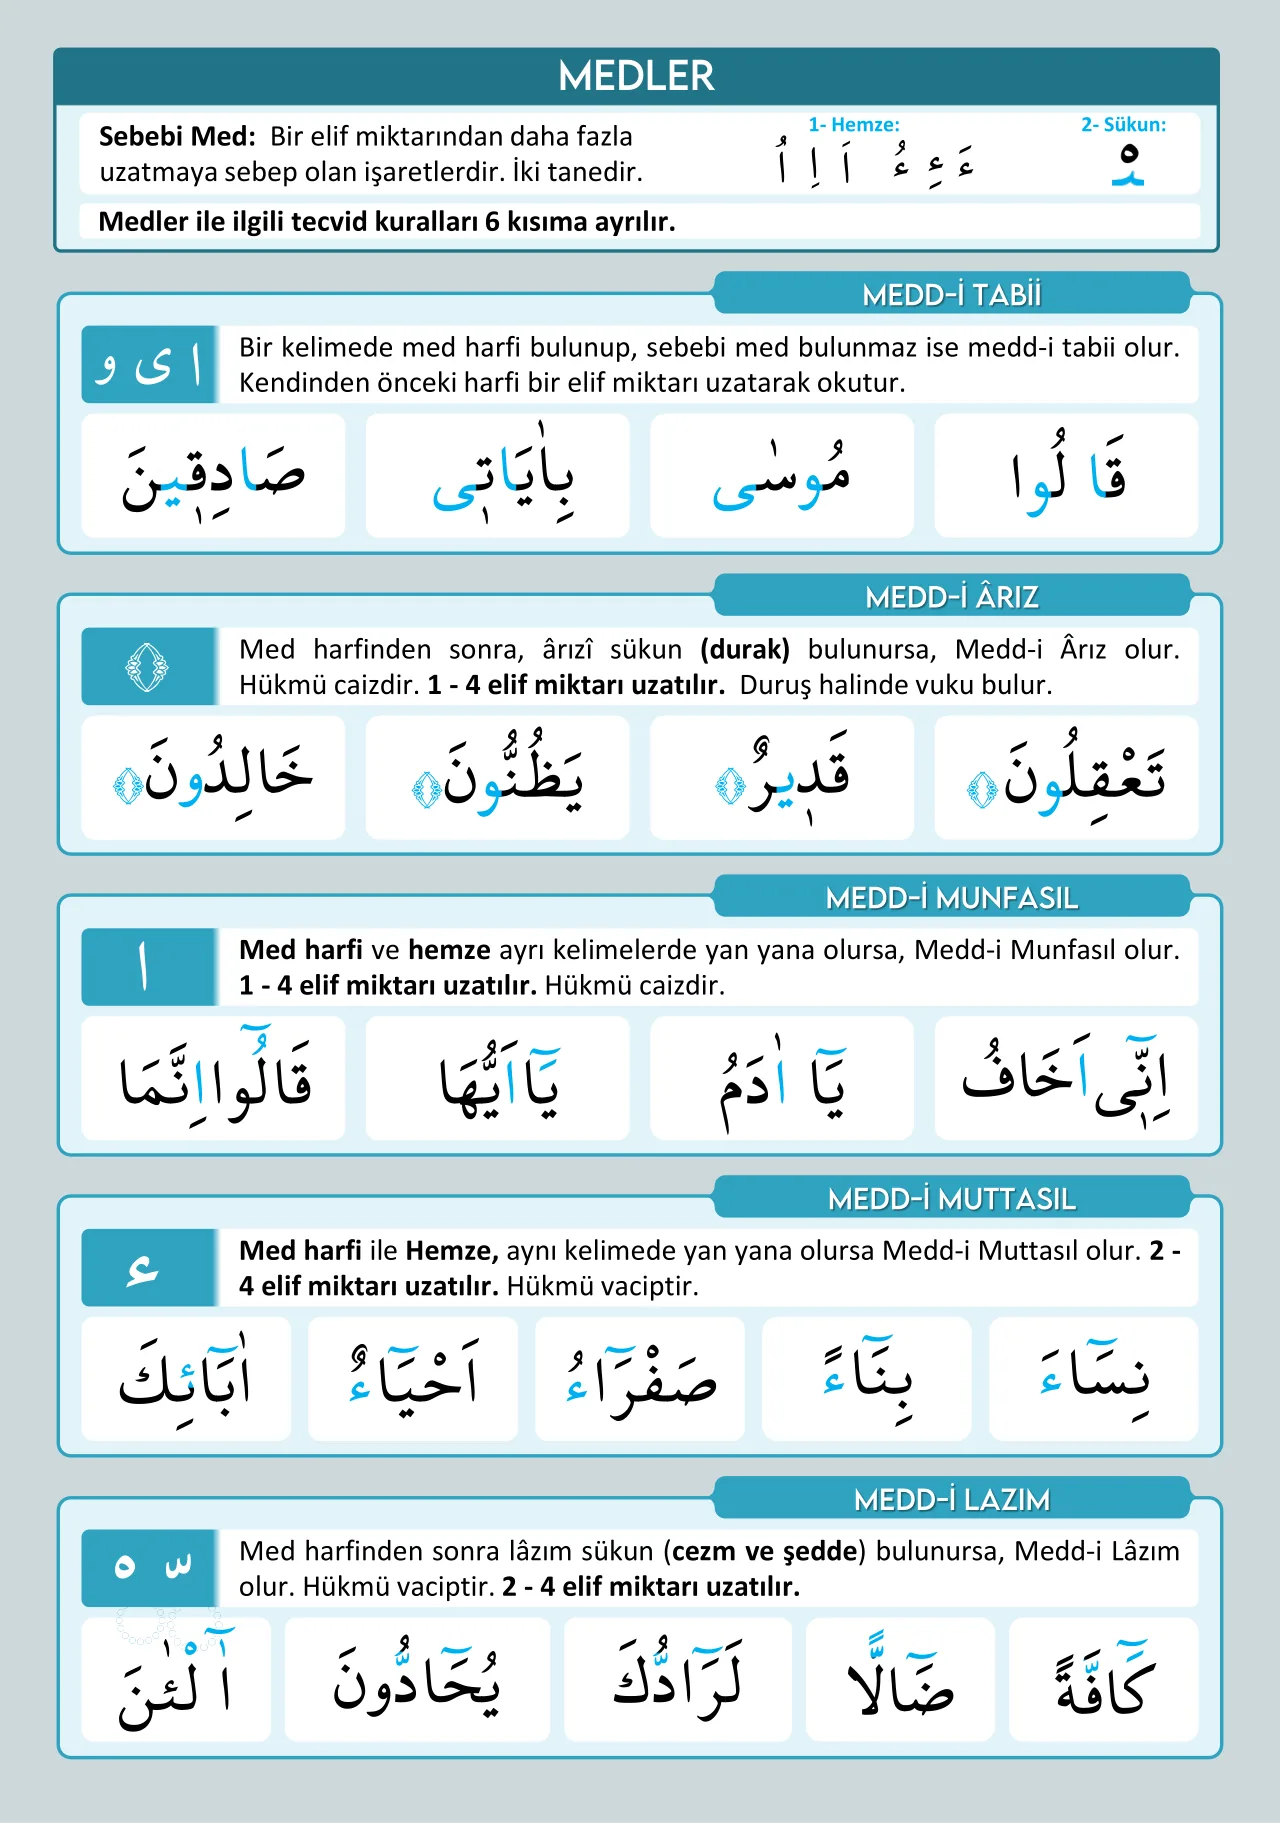 MEDLER
Sebebi Med: Bir elif miktarından daha fazla
uzatmaya sebep olan işaretlerdir. İki tanedir.
1- Hemze:
ءَ ءِ ءُ اَ اِ اُ
2- Sükun:
Medler ile ilgili tecvid kuralları 6 kısıma ayrılır.
MEDD-İ TABİİ
ا ى و
Bir kelimede med harfi bulunup, sebebi med bulunmaz ise medd-i tabii olur.
Kendinden önceki harfi bir elif miktarı uzatarak okutur.
قَا لُوا مُوسٰى بِاٰيَاتٖى صَادِقٖينَ
MEDD-İ ÂRIZ
Med harfinden sonra, ârızî sükun (durak) bulunursa, Medd-i Ârız olur.
Hükmü caizdir. 1 - 4 elif miktarı uzatılır. Duruş halinde vuku bulur.
تَعْقِلُونَ قَدٖيرٌ يَظُنُّونَ خَالِدُونَ
MEDD-İ MUNFASIL
ا
Med harfi ve hemze ayrı kelimelerde yan yana olursa, Medd-i Munfasıl olur.
1 - 4 elif miktarı uzatılır. Hükmü caizdir.
اِنّٖٓى اَخَافُ يَٓا اٰدَمُ يَٓا اَيُّهَا قَالُٓوا اِنَّمَا
MEDD-İ MUTTASIL
ء
Med harfi ile Hemze, aynı kelimede yan yana olursa Medd-i Muttasıl olur. 2 -
4 elif miktarı uzatılır. Hükmü vaciptir.
نِسَٓاءَ بِنَٓاءً صَفْرَٓاءُ اَحْيَٓاءٌ اٰبَٓائِكَ
MEDD-İ LAZIM
Med harfinden sonra lâzım sükun (cezm ve şedde) bulunursa, Medd-i Lâzım
olur. Hükmü vaciptir. 2 - 4 elif miktarı uzatılır.
كَٓافَّةً ضَٓالًّا لَرَٓادُّكَ يُحَٓادُّونَ آٰ لْـٰٔنَ